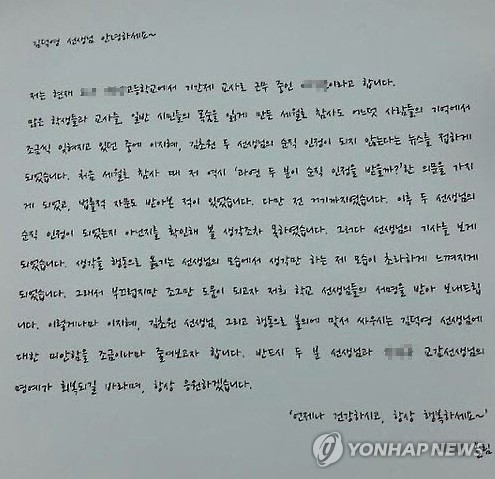 김덕영 선생님 안녕하세요~
저는 현재 고등학교에서 기간제 교사로 근무 중인 이라고 합니다.
많은 학생들과 교사들, 일반 시민들의 목숨을 잃게 만든 세월호 참사도 어느덧 사람들의 기억에서
조금씩 잊혀지고 있던 중에 이지혜, 김초원 두 선생님의 순직 인정이 되지 않는다는 뉴스를 접하게
되었습니다. 처음 세월호 참사 때 저 역시 '과연 두 분이 순직 인정을 받을까?'란 의문을 가지
게 되었고, 법률적 자문도 받아본 적이 있었습니다. 다만 전 거기까지였습니다. 이후 두 선생님의
순직 인정이 되었는지 아닌지를 확인해 볼 생각조차 못하였습니다. 그러다 선생님의 기사를 보게
되었습니다. 생각을 행동으로 옮기는 선생님의 모습에서 생각만 하는 제 모습이 초라하게 느껴지게
되었습니다. 그래서 부끄럽지만 조그만 도움이 되고자 저희 학교 선생님들의 서명을 받아 보내드립
니다. 이렇게나마 이지혜, 김초원 선생님, 그리고 행동으로 불의에 맞서 싸우시는 김덕영 선생님에
대한 미안함을 조금이나마 줄여보고자 합니다. 반드시 두 분 선생님과 교감선생님의
명예가 회복되길 바라며, 항상 응원하겠습니다.
'언제나 건강하시고, 항상 행복하세요~'
올림
YONHAP NEWS